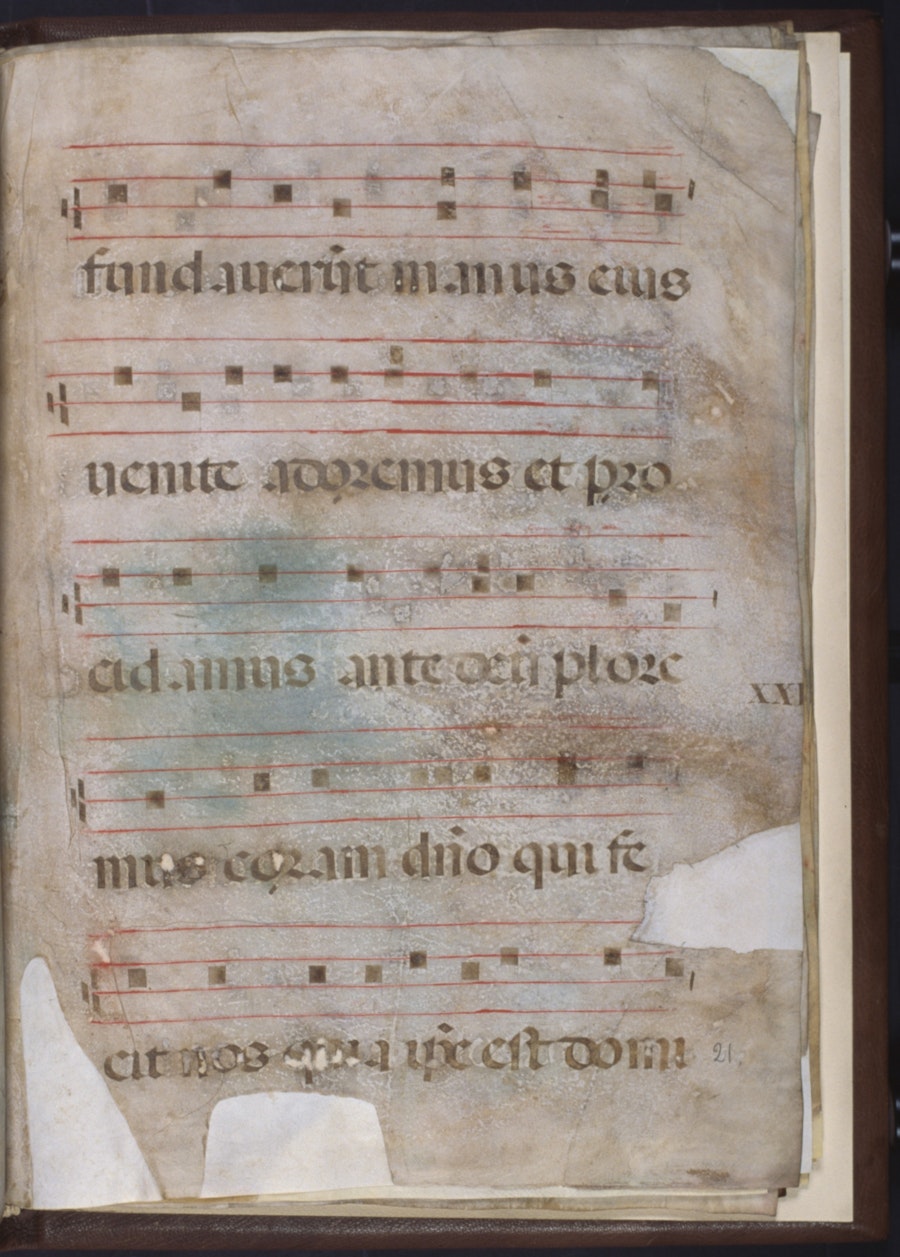 fundauerūt manus eius
uenite adoremus et pro
cidamus ante deū plore
XXI
mus coram dn̄o qui fe
cit nos quia ip̄e est domi
21.